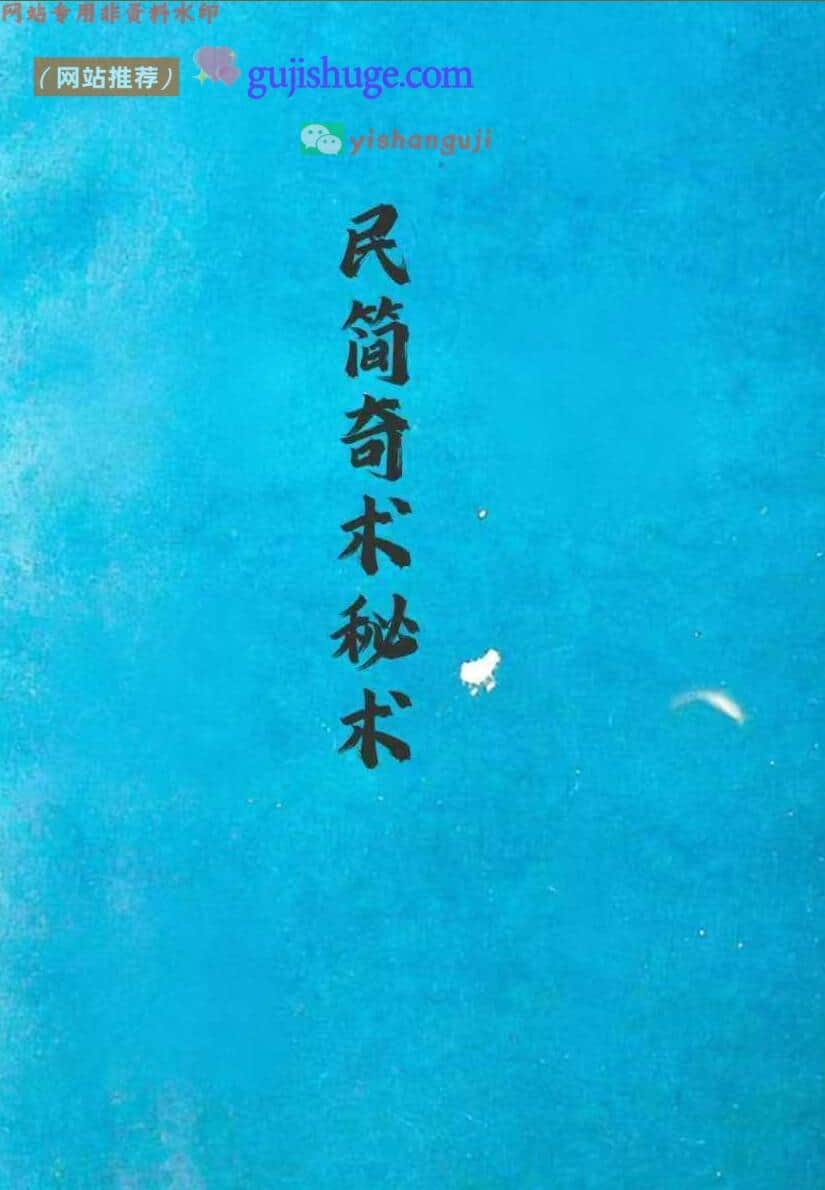 网站专用非资料水印
（网站推荐） gujishuge.com
yishanguji
民简奇术秘术